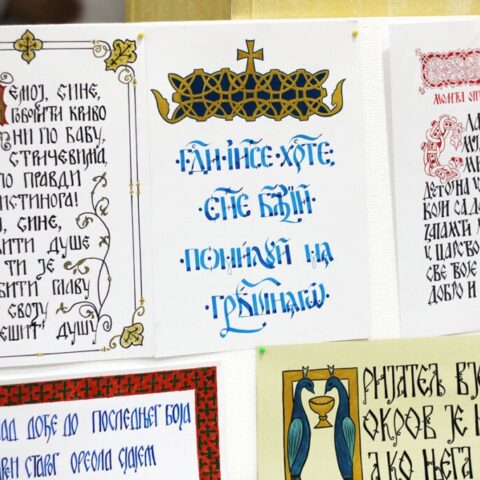 ЕМОЈ, СИНЕ,
ГОВОРИТИ КРИВО
НИ ПО БАБУ,
СТРИЧЕВИМА,
ПО ПРАВДИ
ИСТИНОГА!
СИНЕ,
БИТИ ДУШЕ
ТИ ЈЕ
БИТИ ГЛАВУ
СВОЈУ
ЕШИТ' ДУШУ
ГДИ·ІИСЕ·ХРТЕ:
СНЕ БЖІЙ
ПОМИЛУЙ МА
ГРѢШНАГѠ
У ЦАРСТВО
СВЕ ТВОЈЕ
ДОБРО И
АД ДОЂЕ ДО ПОСЛЕДЊЕГ БОЈА
РЕН СТАРОГ ОРЕОЛА СЈАЈЕМ
РИЈАТЕЉ ВЈЕ
ОКРОВ ЈЕ
А КО ЊЕГА